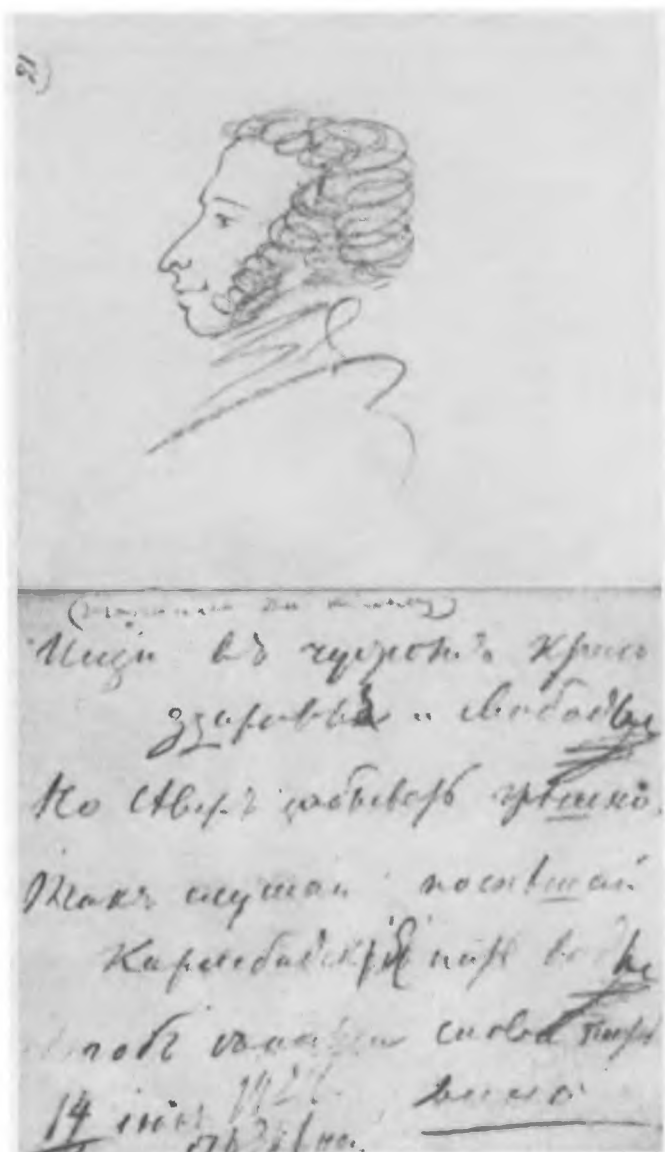 Ищи въ чужомъ краю
здоровья и свободы
Но Сѣверъ забывать грешно,
Такъ слушай поспѣшай
Карлсбадскія пить воды
Чтобъ съ нами снова пить
14 июня 1828. вино